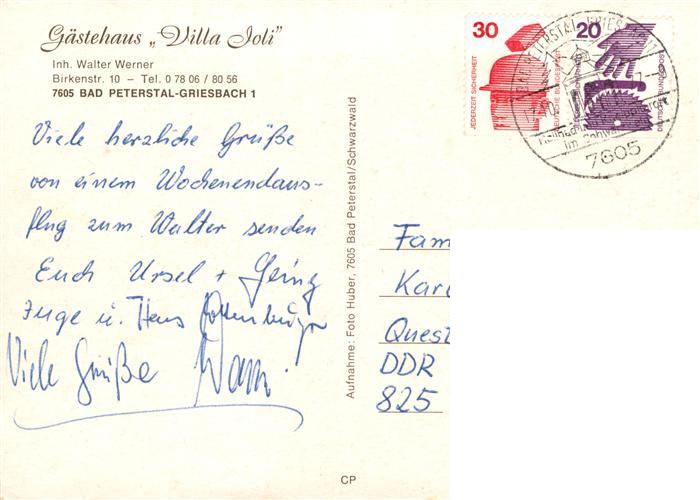 Gästehaus „Villa Joli”
Inh. Walter Werner
Birkenstr. 10 – Tel. 0 78 06 / 80 56
7605 BAD PETERSTAL-GRIESBACH 1
Viele herzliche Grüße
von einem Wochenendaus-
flug zum Walter senden
Euch Ursel +
u. Hans
Viele Grüße
Aufnahme: Foto Huber, 7605 Bad Peterstal/Schwarzwald
CP
30
JEDERZEIT SICHERHEIT
DEUTSCHE BUNDESPOST
20
DEUTSCHE BUNDESPOST
BAD PETERSTAL-GRIESBACH
im Schwarzwald
7605
Fam
Kar
Quest
DDR
825